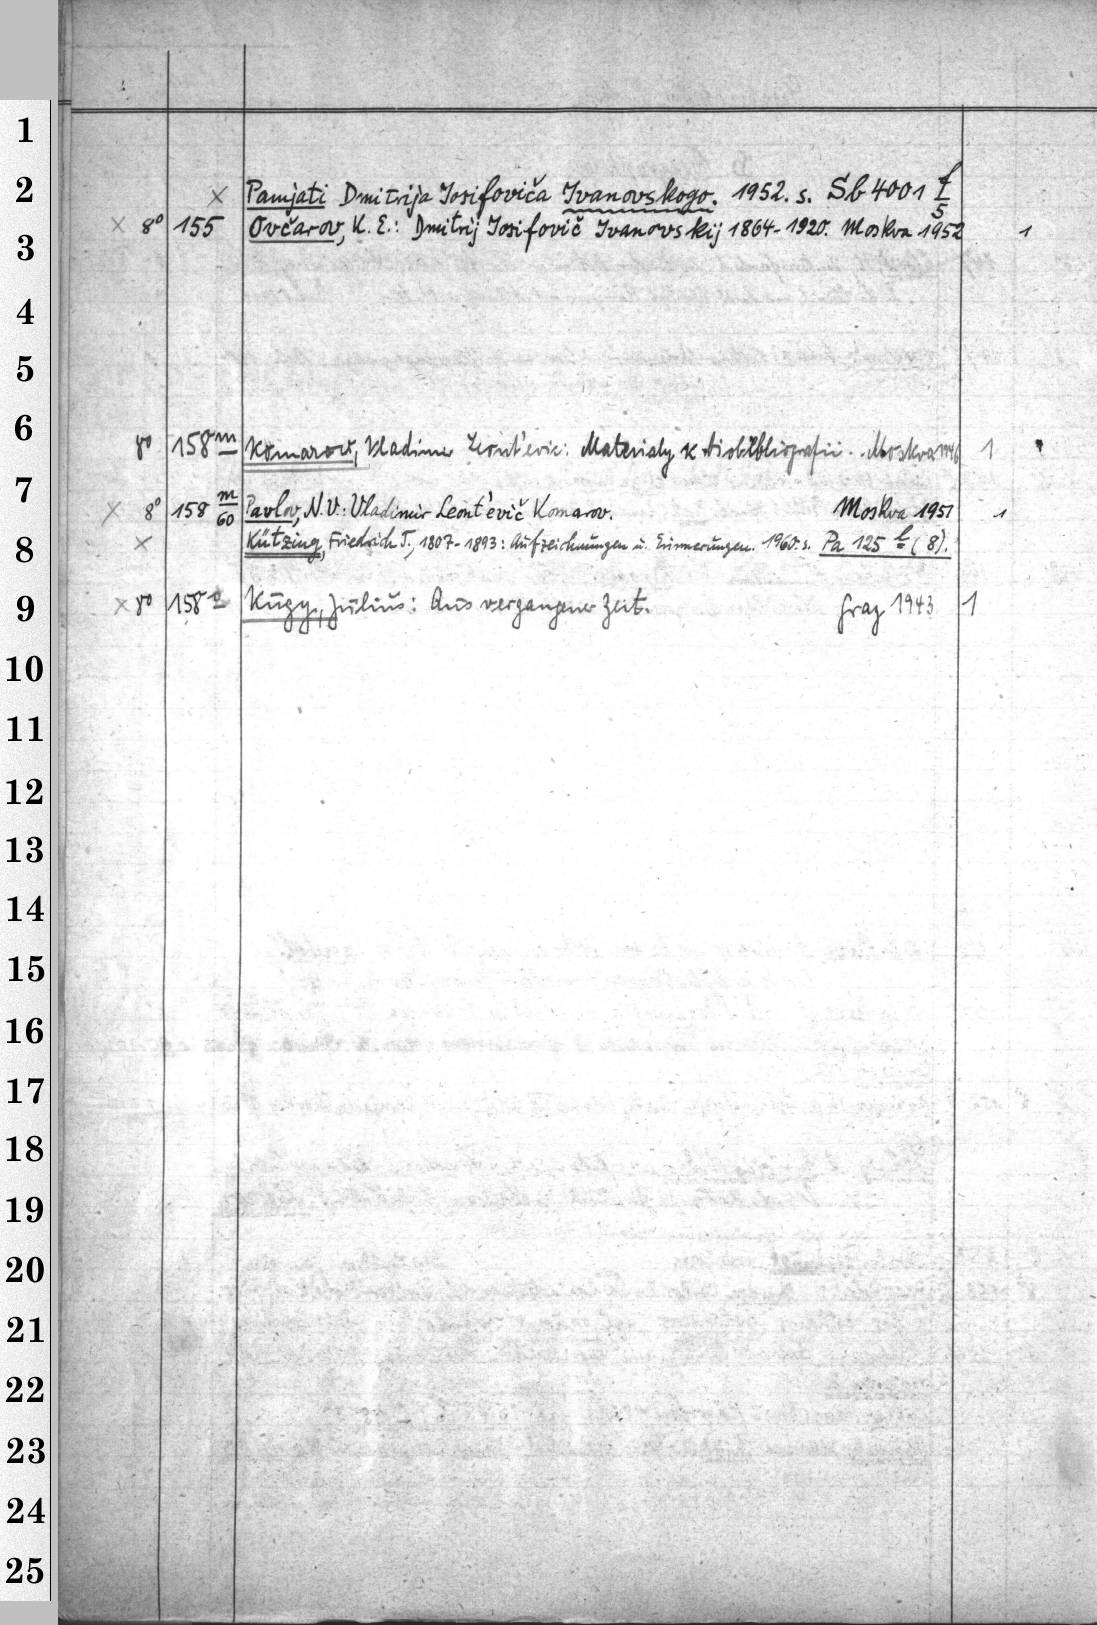 1
2
3
4
5
6
7
8
9
10
11
12
13
14
15
16
17
18
19
20
21
22
23
24
25
× Pamjati Dmitrija Iosifoviča Ivanovskogo. 1952. s. Sb 4001 f/5
× 8° 155 Ovčarov, K. E.: Dmitrij Iosifovič Ivanovskij 1864-1920. Moskva 1952 1
8° 158 m Komarov, Vladimir Leont'evic: Materialy k biobibliografii. Moskva 1946 1
× 8° 158 m/60 Pavlov, N. V.: Vladimir Leont'evič Komarov. Moskva 1951 1
× Kützing, Friedrich T., 1807-1893: Aufzeichnungen u. Erinnerungen. 1960. s. Pa 125 (8).
× 8° 158 Kugy, Julius: Aus vergangener Zeit. Graz 1943 1